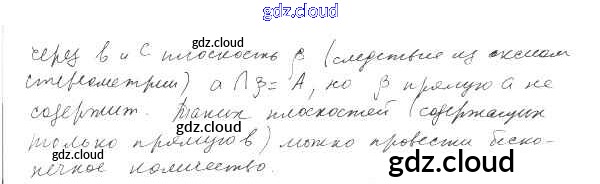 gdz.cloud
через b и C плоскость β (следствие из аксиом
gdz.cloud
gdz.cloud
стереометрии) a ∩ β = A, но β прямую a не
содержит. Таких плоскостей (содержащих
gdz.cloud
gdz.cloud
только прямую b) можно провести беско-
нечное количество.
gdz.cloud
gdz.cloud